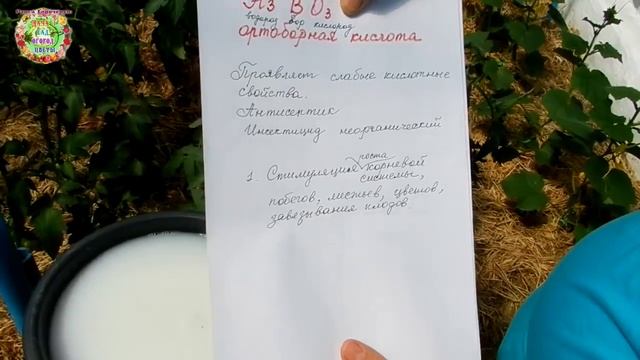 H3 BO3
водород бор кислород
ортоборная кислота
Проявляет слабые кислотные
свойства.
Антисептик
Инсектицид неорганический
1. Стимуляция роста корневой
системы,
побегов, листьев, цветов,
завязывания плодов.
САД
ОГОРОД
ЦВЕТЫ